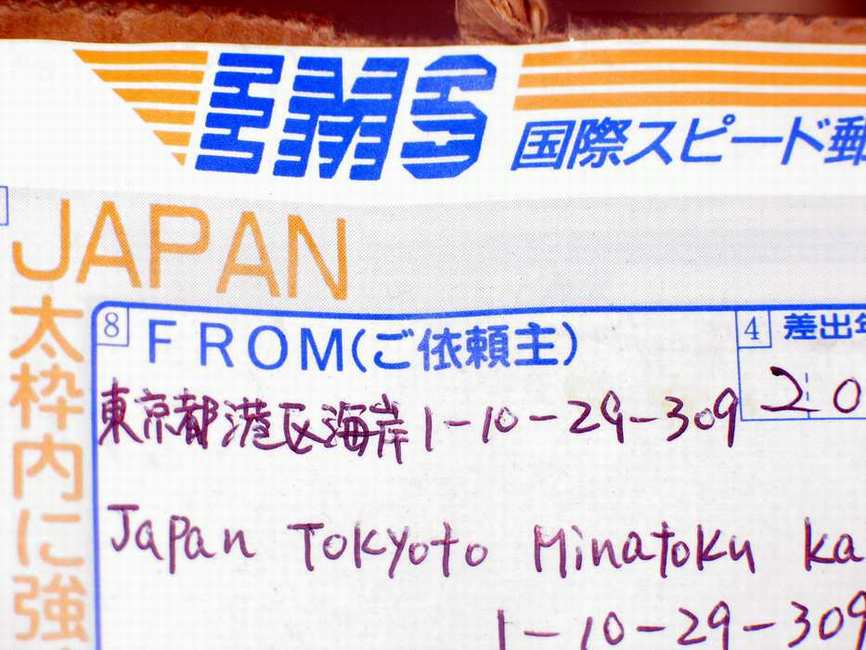 EMS
国際スピード郵
JAPAN
太枠内に強
8 FROM(ご依頼主)
4 差出年
20
東京都港区海岸1-10-29-309
Japan Tokyoto Minatoku Ka
1-10-29-309